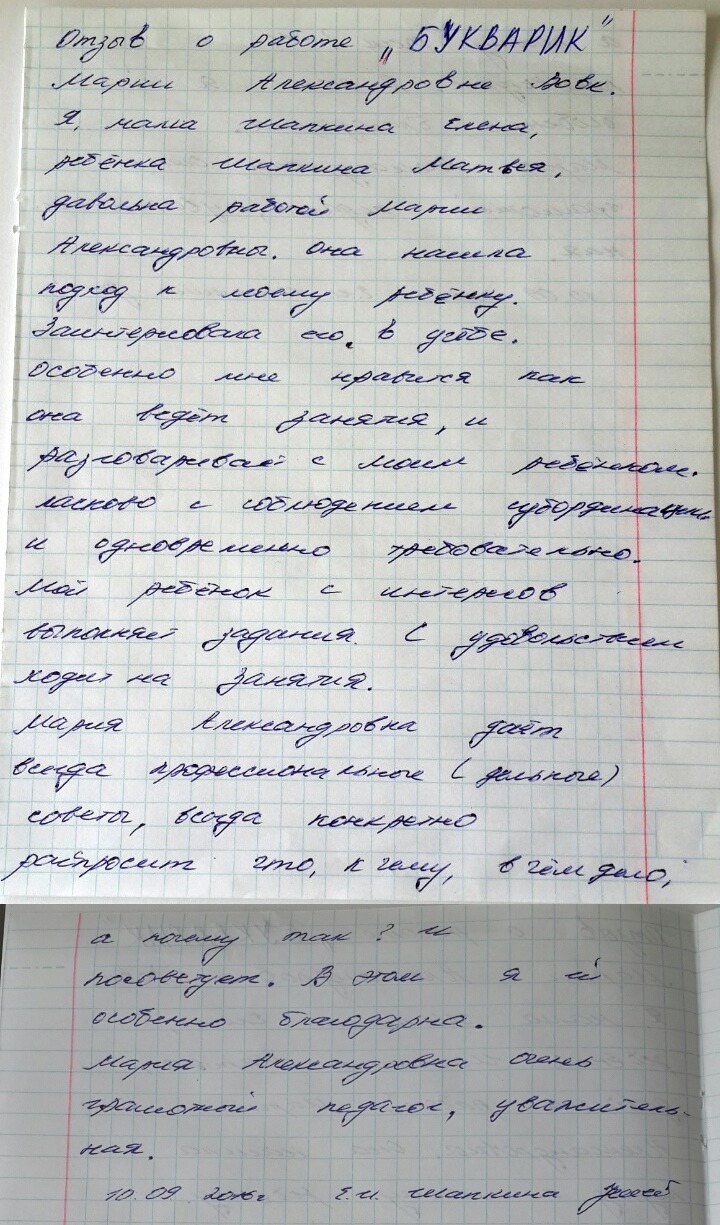 Отзыв о работе „БУКВАРИК"
Марии Александровне Вовк.
Я, мама Шапкина Елена,
ребёнка Шапкина Матвея,
давольна работой Марии
Александровны. Она нашла
подход к моему ребёнку.
Заинтерисовала его в учёбе.
Особенно мне нравится как
она ведёт занятия, и
разговаривает с моим ребёнком.
ласково с соблюдением субординации
и одновременно требовательно.
Мой ребёнок с интересов
выполняет задания. С удовольствием
ходит на занятия.
Мария Александровна даёт
всегда профессиональные (дельные)
советы, всегда конкретно
распросит что, к чему, в чём дело,
а почему так? и
посоветует. В этом я ей
особенно благодарна.
Мария Александровна очень
грамотный педагог, уважитель-
ная.
10.09 2016г Е.И. Шапкина